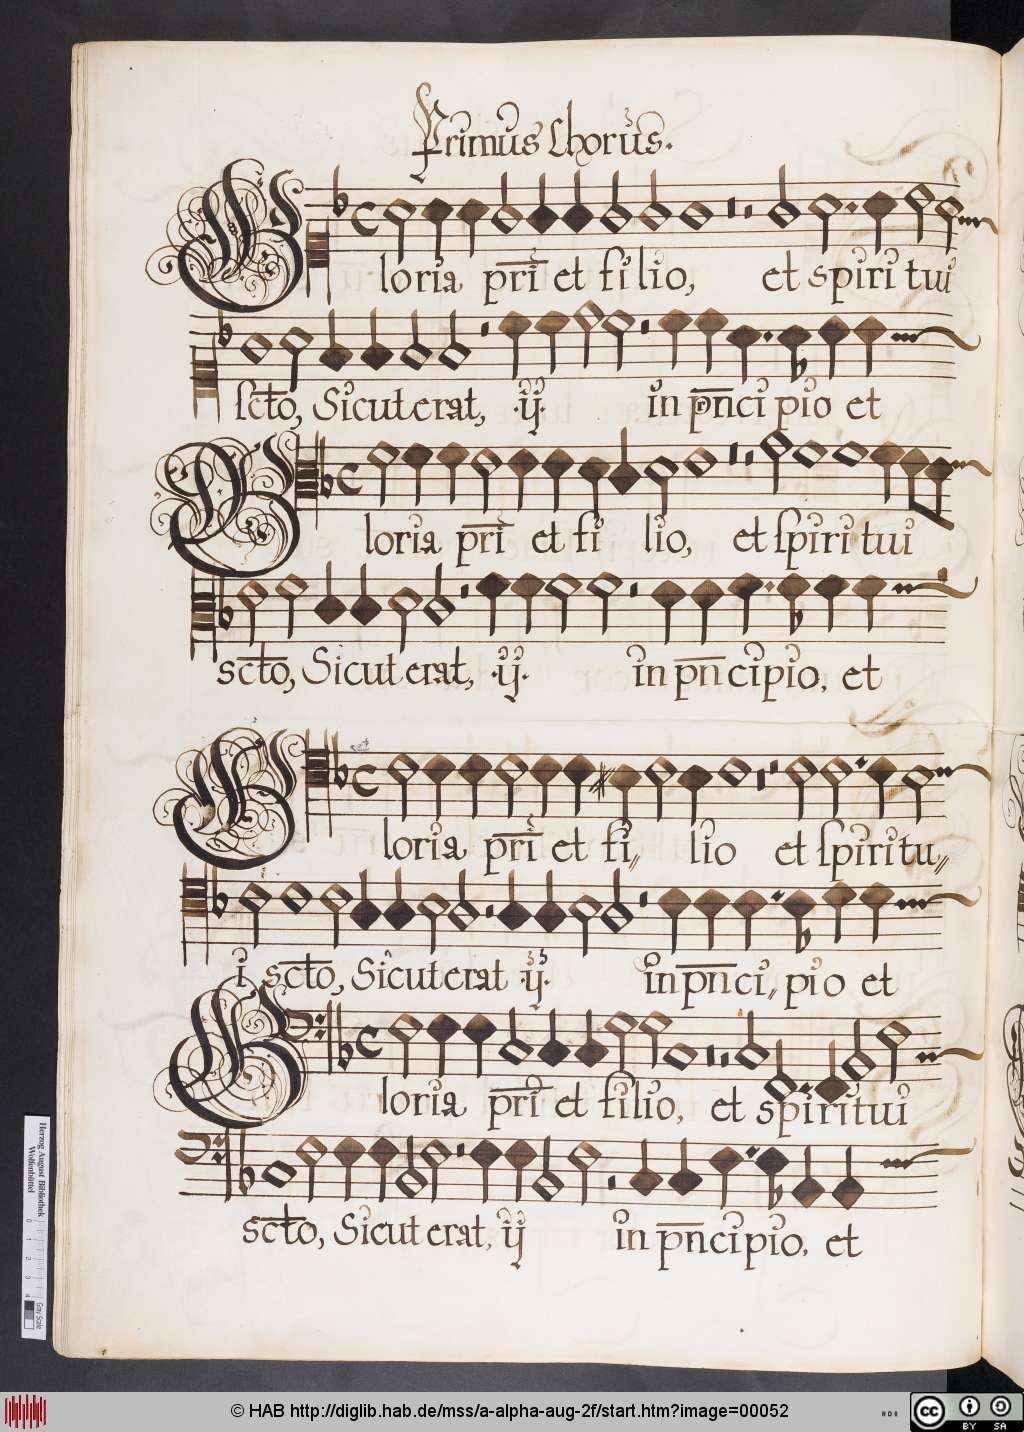 Primus Chorus.
Gloria pr̅i et filio, et spiritui
scto, Sicut erat, .ij. in pn̅cipio et
Gloria pr̅i et filio, et spiritui
scto, Sicut erat, .ij. in pn̅cipio, et
Gloria pr̅i et fi〃 lio et spiritu〃
i, scto, Sicut erat .ij. in pn̅ci〃pio et
Gloria pr̅i et filio, et spiritui
scto, Sicut erat, ij in pn̅cipio, et
Herzog August Bibliothek
Wolfenbüttel
0 1 2 3 4
Gray Scale
© HAB http://diglib.hab.de/mss/a-alpha-aug-2f/start.htm?image=00052
HDB
cc
BY SA